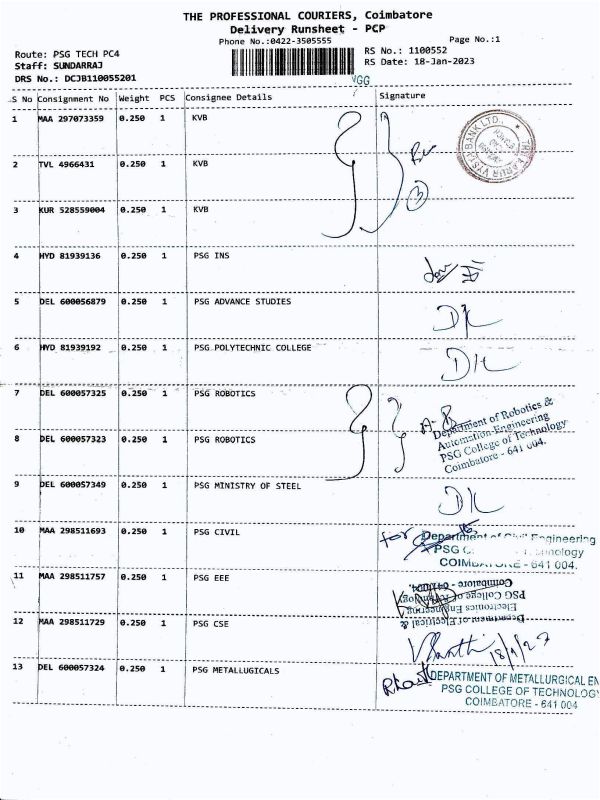 THE PROFESSIONAL COURIERS, Coimbatore
Delivery Runsheet - PCP
Phone No.:0422-3505555
Page No.:1
Route: PSG TECH PC4
RS No.: 1100552
Staff: SUNDARRAJ
RS Date: 18-Jan-2023
DRS No.: DCJB110055201
S No Consignment No Weight PCS Consignee Details Signature
1 MAA 297073359 0.250 1 KVB
2 TVL 4966431 0.250 1 KVB
3
3 KUR 528559004 0.250 1 KVB
4 HYD 81939136 0.250 1 PSG INS
5 DEL 600056879 0.250 1 PSG ADVANCE STUDIES
6 HYD 81939192 0.250 1 PSG POLYTECHNIC COLLEGE
7 DEL 600057325 0.250 1 PSG ROBOTICS
8 DEL 600057323 0.250 1 PSG ROBOTICS
Department of Robotics &
Automation Engineering
PSG College of Technology
Coimbatore - 641 004.
9 DEL 600057349 0.250 1 PSG MINISTRY OF STEEL
10 MAA 298511693 0.250 1 PSG CIVIL
for
Department of Civil Engineering
PSG
COIMBATORE - 641 004.
11 MAA 298511757 0.250 1 PSG EEE
Department of Electrical &
Electronics Engineering
PSG College of Technology
Coimbatore - 641 004.
12 MAA 298511729 0.250 1 PSG CSE
18/1/23
13 DEL 600057324 0.250 1 PSG METALLUGICALS
DEPARTMENT OF METALLURGICAL EN
PSG COLLEGE OF TECHNOLOGY
COIMBATORE - 641 004